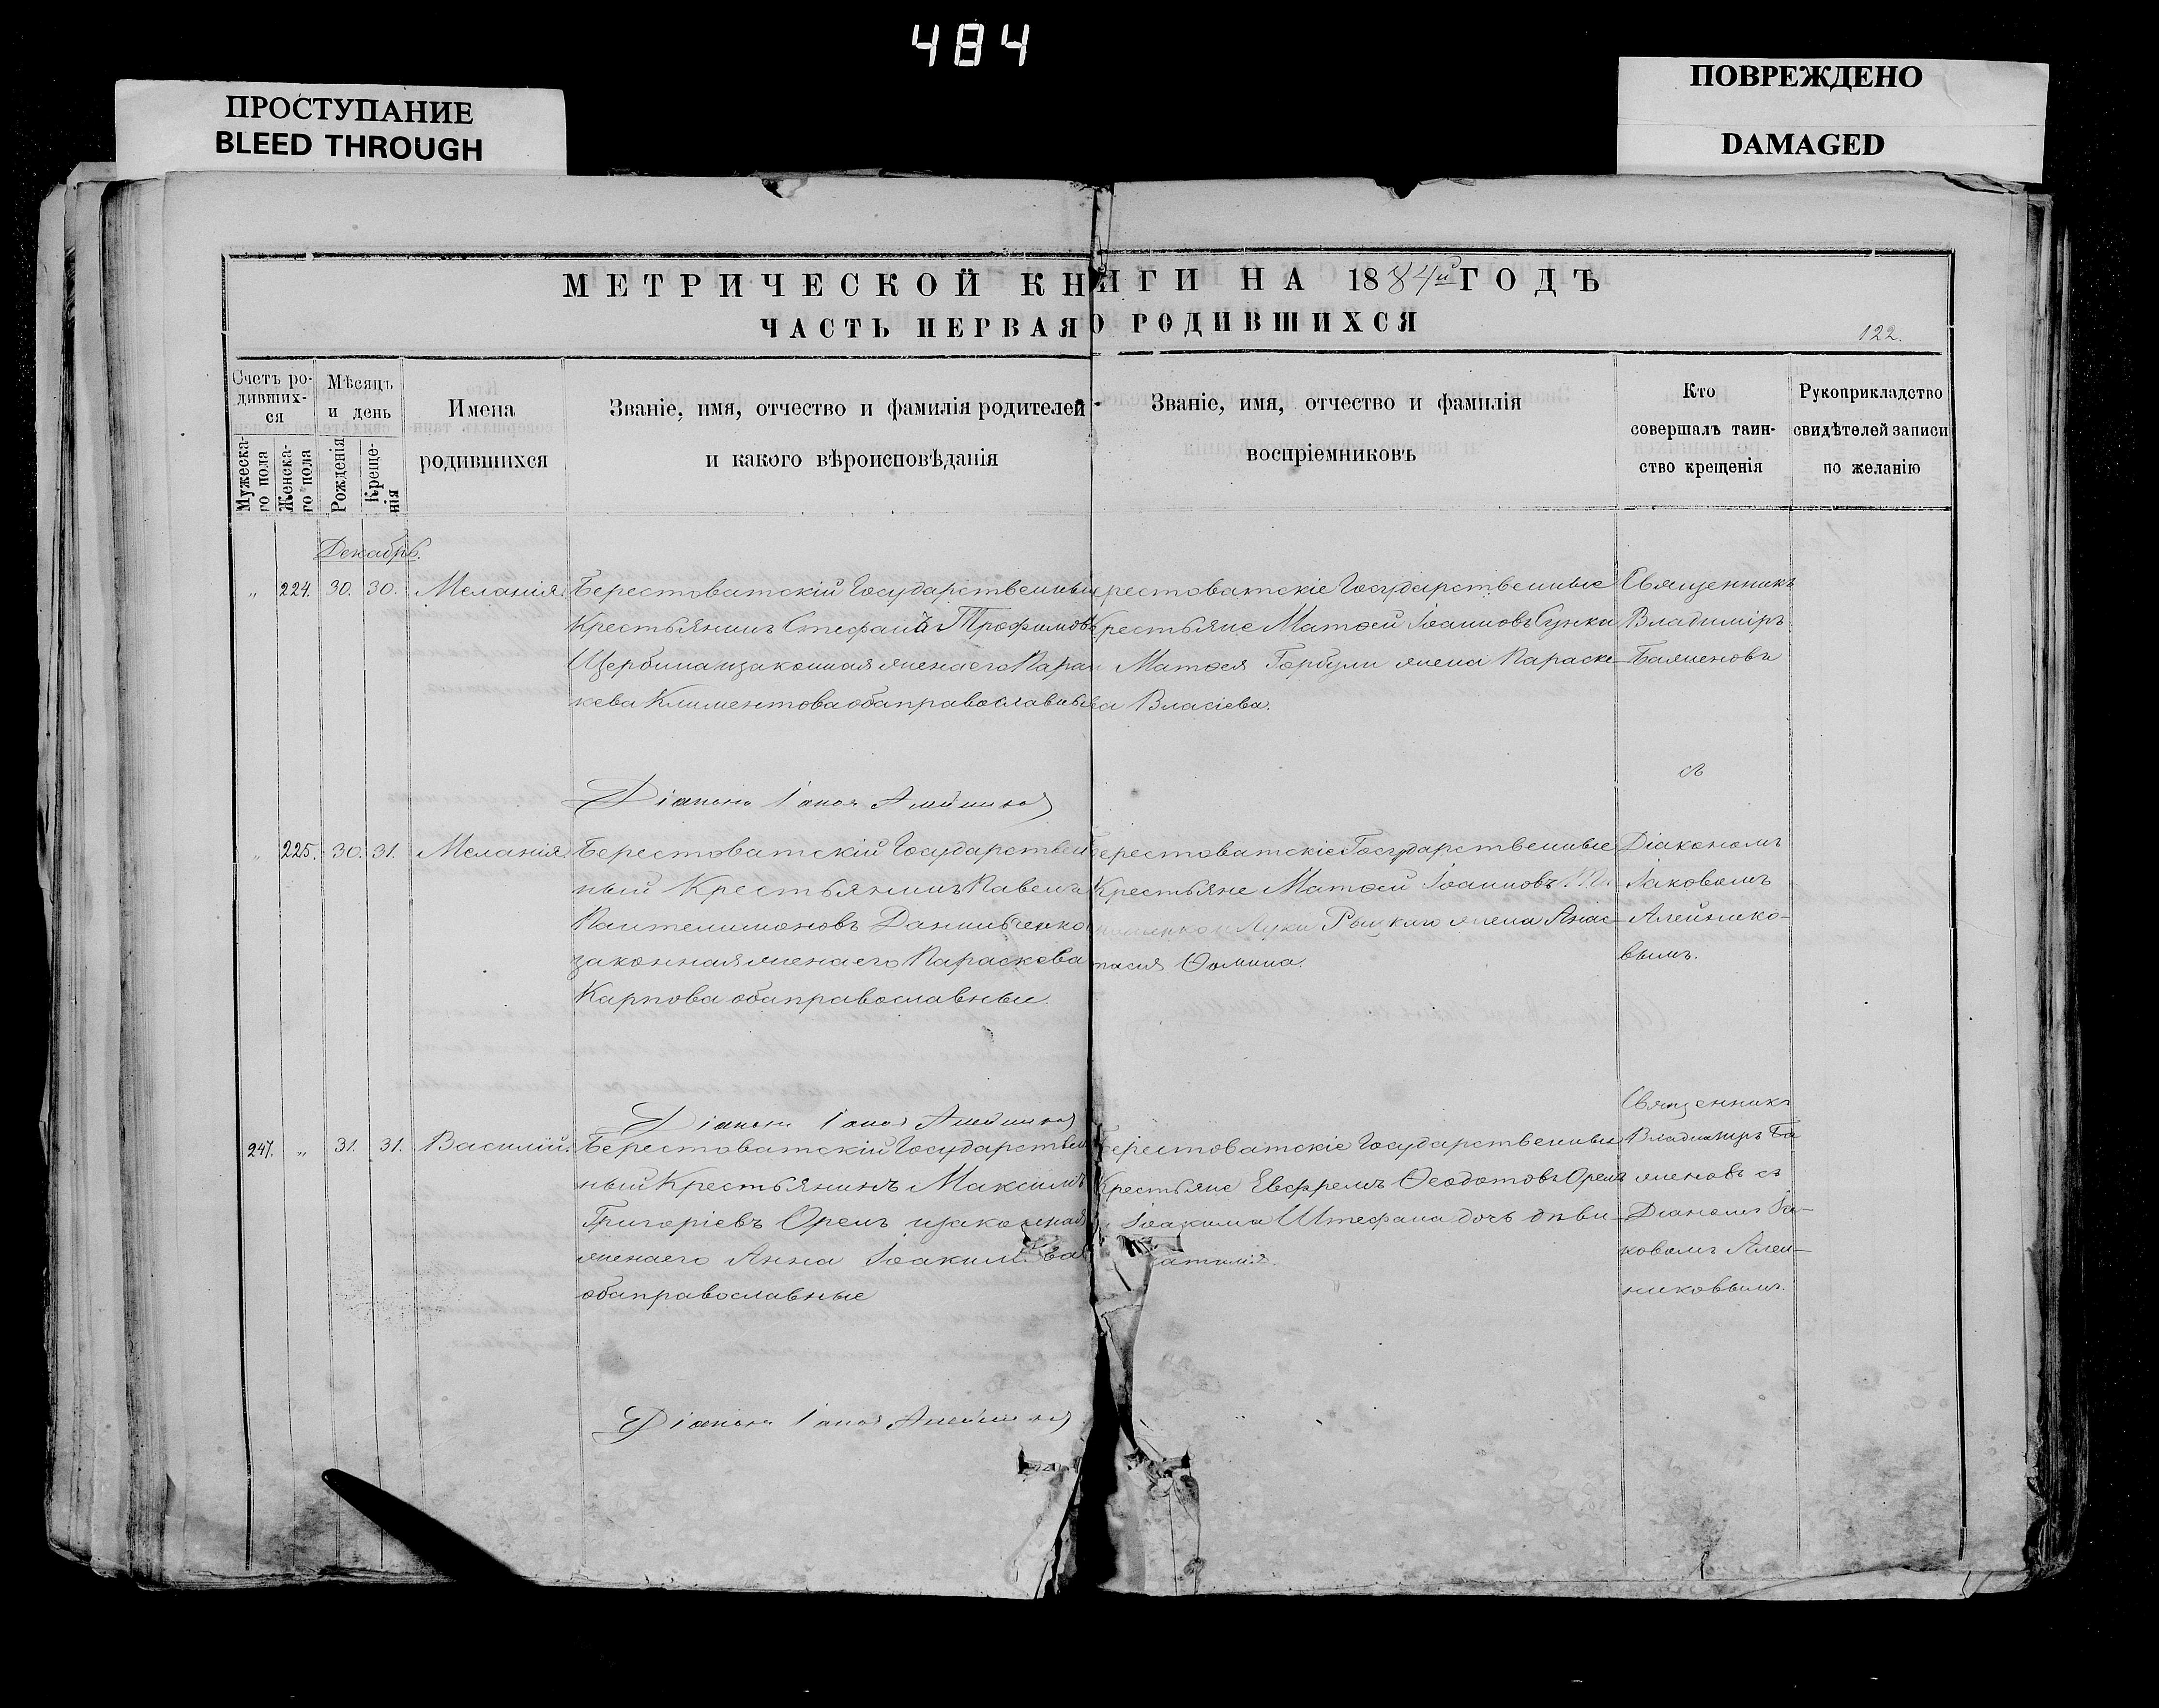 484
ПРОСТУПАНИЕ
BLEED THROUGH
ПОВРЕЖДЕНО
DAMAGED
МЕТРИЧЕСКОЙ КНИГИ НА 1884й ГОДЪ
ЧАСТЬ ПЕРВАЯ О РОДИВШИХСЯ
122.
Счетъ ро-
дивших-
ся
Мужеска-
го пола
Женска-
го пола
Мѣсяцъ
и день
Рожденія
Креще-
нія
Имена
родившихся
Званіе, имя, отчество и фамилія родителей
и какого вѣроисповѣданія
Званіе, имя, отчество и фамилія
воспріемниковъ
Кто
совершалъ таин-
ство крещенія
Рукоприкладство
свидѣтелей записи
по желанію
Декабрь.
„ 224. 30. 30. Меланія.
Берестоватскій Государственный
Крестьянинъ Стефанъ Трофимовъ
Щербина и законная жена его Парас
кева Климентова оба православные
рестоватскіе Государственные
Крестьяне Матѳей Іоанновъ Сунки
Матѳея Горбули жена Параске-
ва Власіева.
Священникъ
Владиміръ
Баженовъ
съ
Діаконъ Іаковъ Алейниковъ
„ 225. 30. 31. Меланія.
Берестоватскій Государствен
ный Крестьянинъ Павелъ
Пантелимоновъ Данильченко
законная жена его Параскева
Карпова оба православные.
Берестоватскіе Государственные
Крестьяне Матѳей Іоанновъ
Луки Рыцкаго жена Анас-
тасія Ѳомина.
Діакономъ
Іаковомъ
Алейнико-
вымъ.
Діаконъ Іаковъ Алейниковъ
247. „ 31. 31. Василій.
Берестоватскій Государствен
ный Крестьянинъ Максимъ
Григоріевъ Орелъ и законная
жена его Анна Іоакимова
оба православные
Берестоватскіе Государственные
Крестьяне Евфремъ Ѳеодотовъ Орелъ
Іоакима Штефана дочь дѣви-
аталія.
Священникъ
Владиміръ Ба
женовъ съ
Діакономъ Іа-
ковомъ Алей-
никовымъ.
Діаконъ Іаковъ Алейниковъ